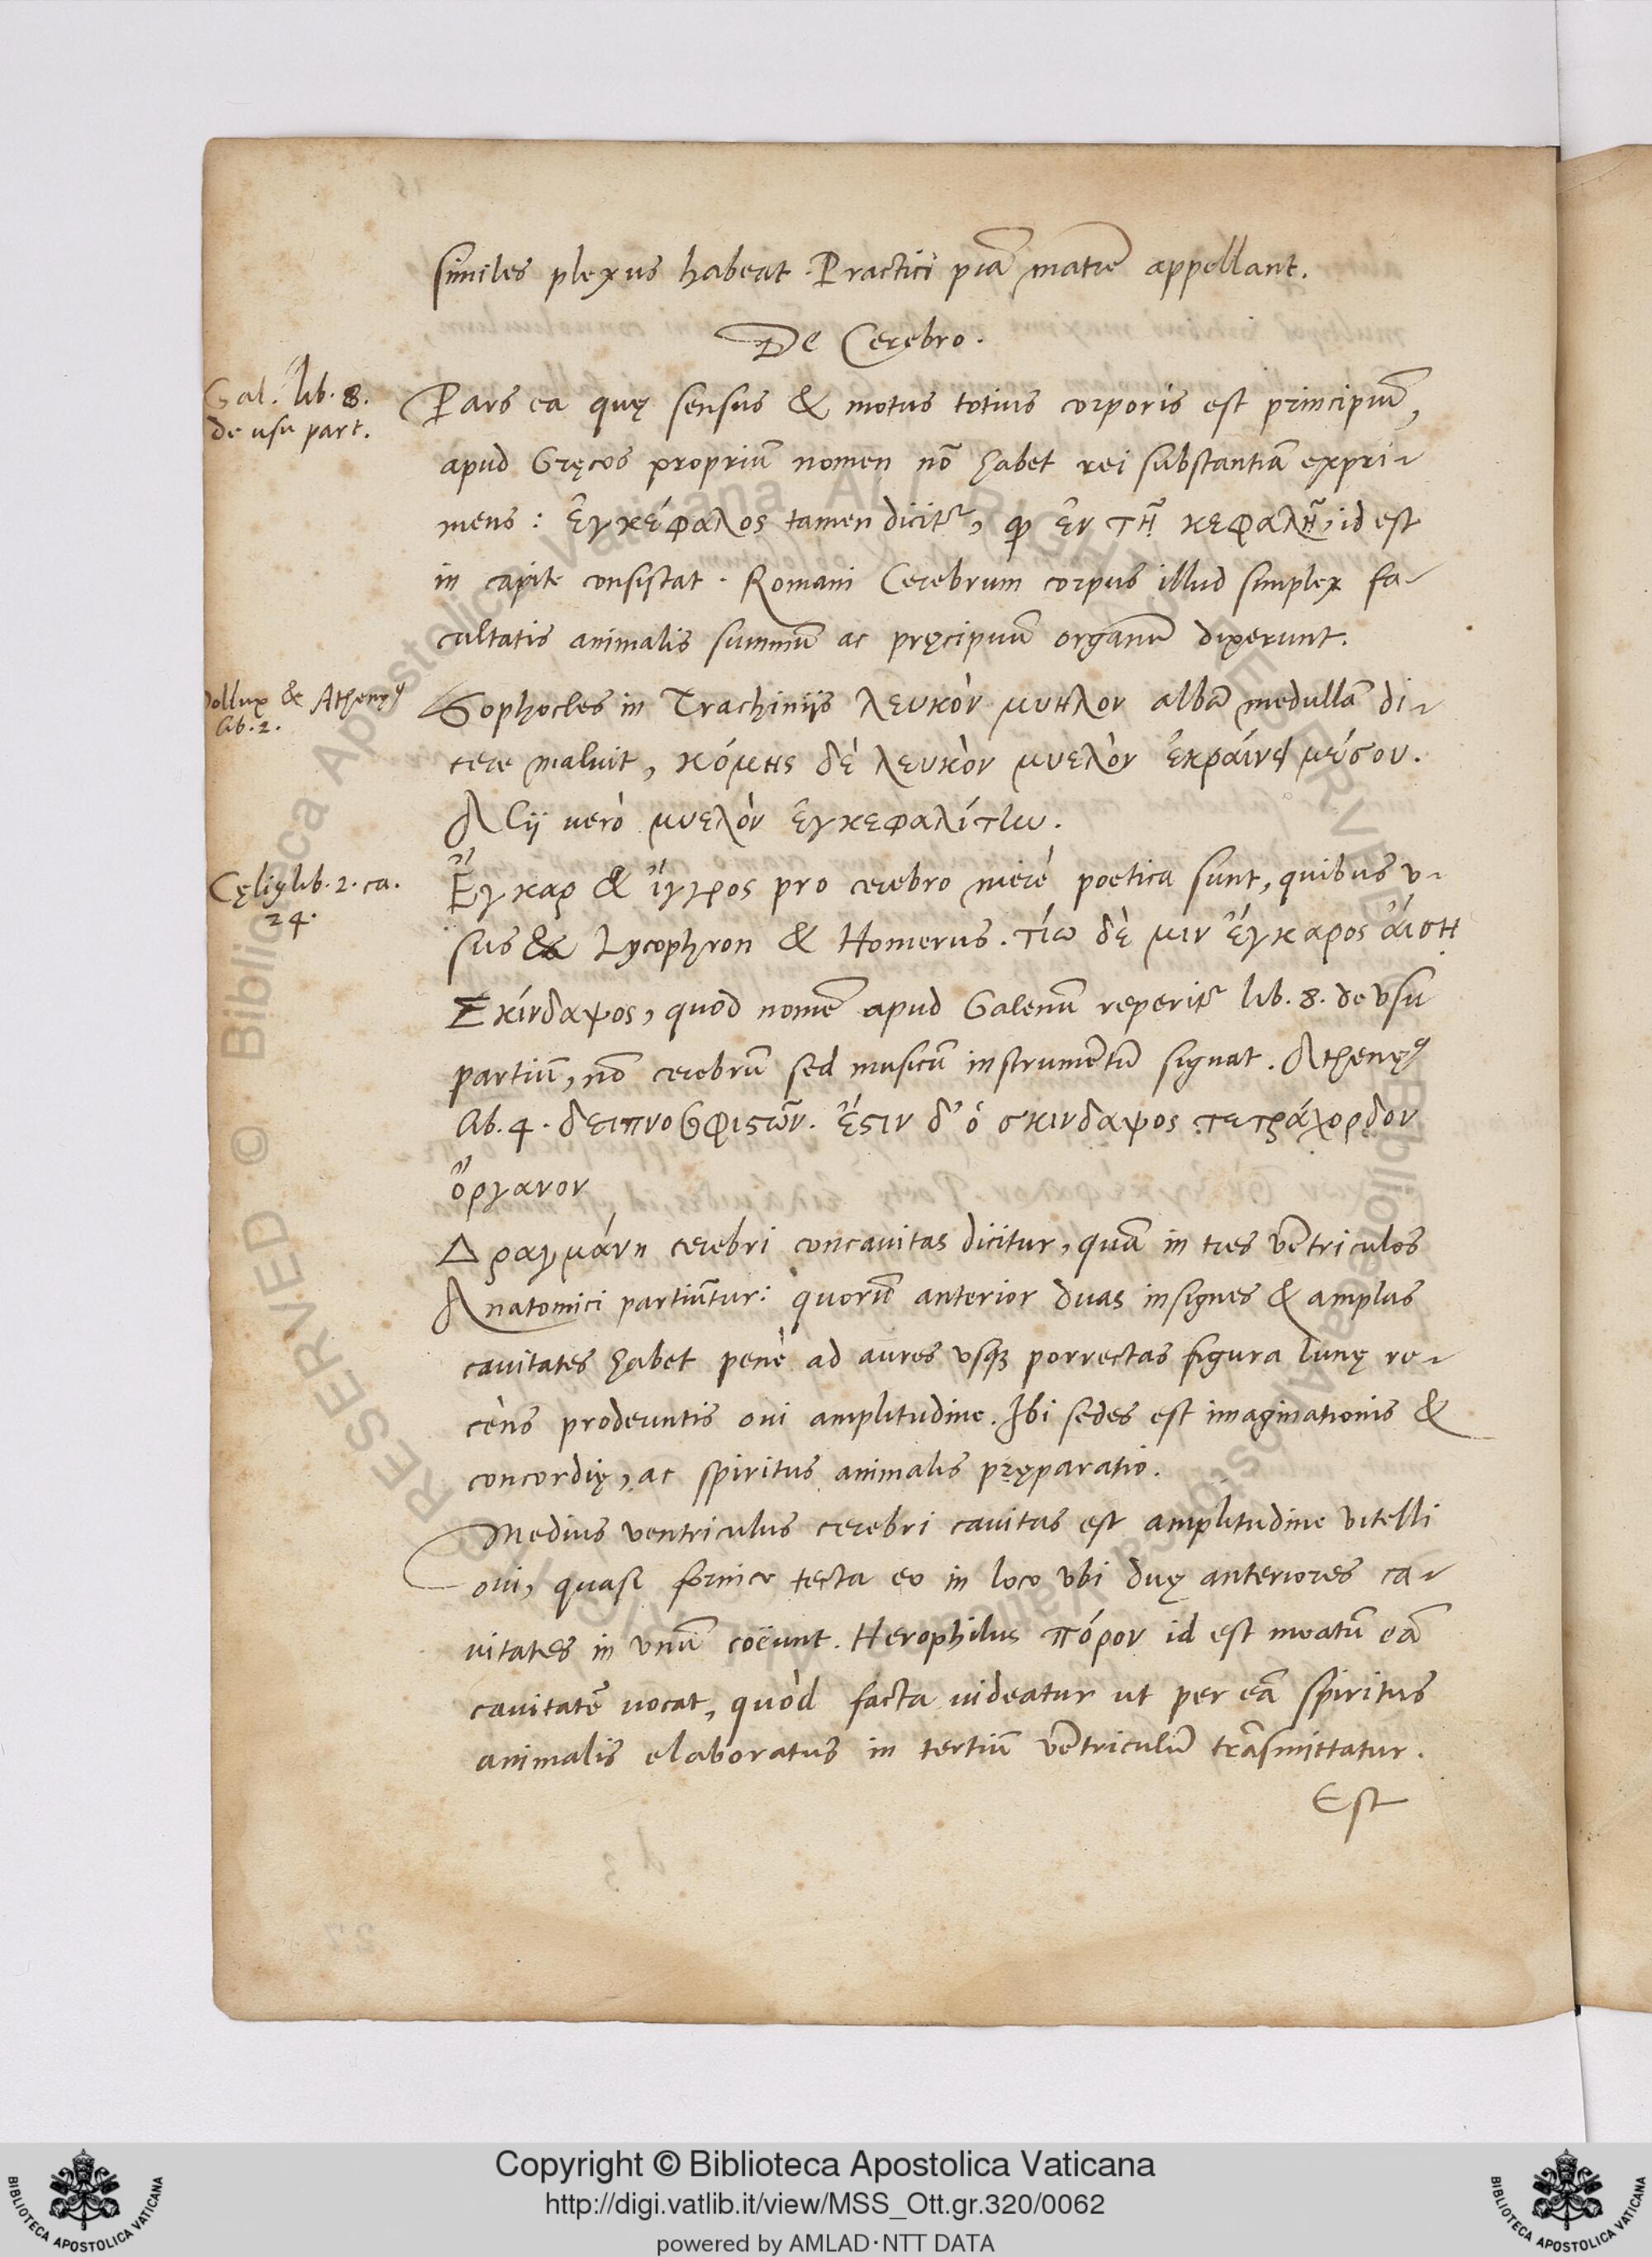 similes plexus habeat. Practici piã matrẽ appellant.
De Cerebro.
Gal. lib. 8.
de usu part.
Pars ea quę sensus & motus totius corporis est principiũ,
apud Gręcos propriũ nomen nõ habet rei substantiã expri-
mens: ἐγκέφαλος tamen dicitʳ, ꝙ ἐν τῇ κεφαλῇ, id est
in capite consistat. Romani Cerebrum corpus illud simplex fa-
cultatis animalis summũ ac pręcipuũ organũ dixerunt.
Pollux & Athenęꝰ
lib. 2.
Sophocles in Trachiniis λευκὸν μυηλον albã medullã di-
cere maluit, κόμης δὲ λευκὸν μυελὸν ἐκραίνει μέσου.
Alij uerò μυελὸν ἐγκεφαλίτην.
Cęliꝰ lib. 2. ca.
24.
Ἔγκαρ & ἴγκρος pro cerebro merè poetica sunt, quibus v-
sus & Lycophron & Homerus. τίω δὲ μιν ἔγκαρος ἄιση
Σκίνδαψος, quod nomẽ apud Galenũ reperitʳ lib. 8. de vsu
partiũ, nõ cerebrũ sed musicũ instrumẽtũ signat. Athenęꝰ
lib. 4. δειπνοσοφιστῶν. ἔστιν δ' ὁ σκινδαψος τετράχορδον
ὄργανον
Δραγμάνη cerebri concauitas dicitur, quã in tres vẽtriculos
Anatomici partiũtur: quorũ anterior duas insignes & amplas
cauitates habet penè ad aures vsqꝫ porrectas figura lunę re-
cèns prodeuntis oui amplitudine. Ibi sedes est imaginationis &
concordię, ac spiritus animalis pręparatio.
Medius ventriculus cerebri cauitas est amplitudine vitelli
oui, quasi fornice tecta eo in loco vbi duę anteriores ca-
uitates in vnũ coëunt. Herophilus πόρον id est meatũ eã
cauitatẽ uocat, quòd facta uideatur ut per eã spiritus
animalis elaboratus in tertiũ vẽtriculũ trãsmittatur.
Est
Copyright © Biblioteca Apostolica Vaticana
http://digi.vatlib.it/view/MSS_Ott.gr.320/0062
powered by AMLAD·NTT DATA